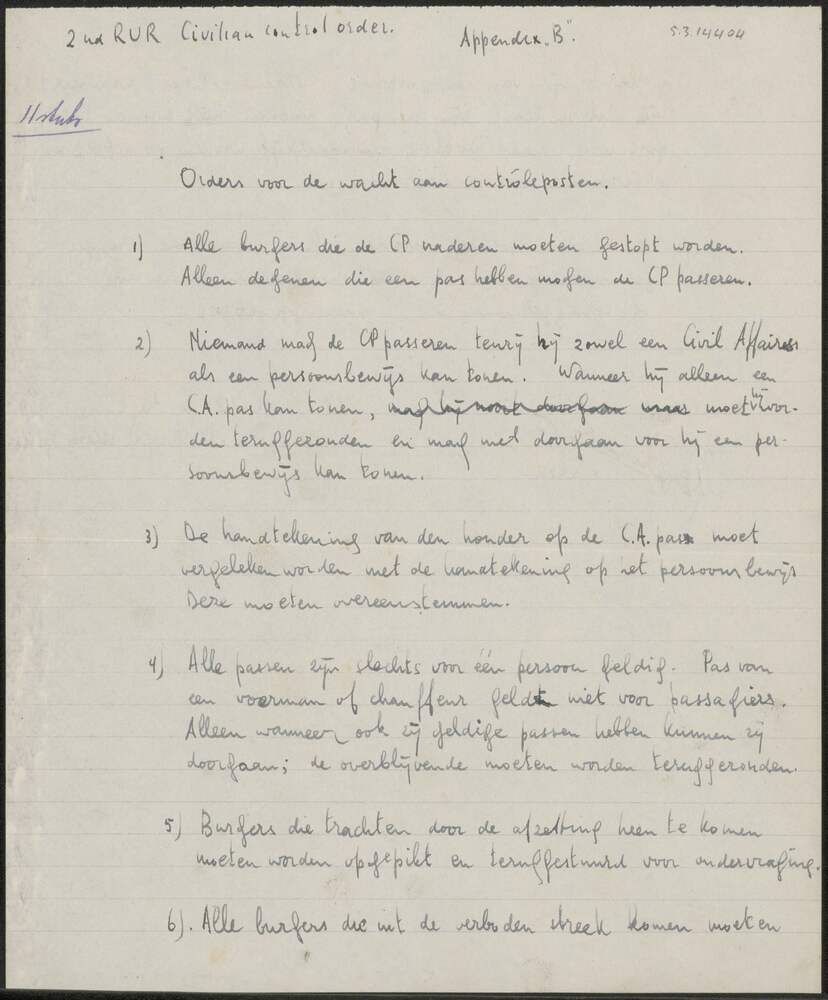 2nd RUR Civilian control order. Appendix „B". 5.3.14404
11 stuks
Orders voor de wacht aan contrôleposten.
1) Alle burgers die de CP naderen moeten gestopt worden.
Alleen degenen die een pas hebben mogen de CP passeren.
2) Niemand mag de CP passeren tenzij hij zowel een Civil Affairs
als een persoonsbewijs kan tonen. Wanneer hij alleen een
C.A. pas kan tonen, moet hij wor-
den teruggezonden en mag niet doorgaan voor hij een per-
soonsbewijs kan tonen.
3) De handtekening van den houder op de C.A. pas moet
vergeleken worden met de handtekening op het persoonsbewijs
Deze moeten overeenstemmen.
4) Alle passen zijn slechts voor één persoon geldig. Pas van
een voerman of chauffeur geldt niet voor passagiers.
Alleen wanneer ook zij geldige passen hebben kunnen zij
doorgaan; de overblijvende moeten worden teruggezonden.
5) Burgers die trachten door de afzetting heen te komen
moeten worden opgepikt en teruggestuurd voor ondervraging.
6). Alle burgers die uit de verboden streek komen moeten